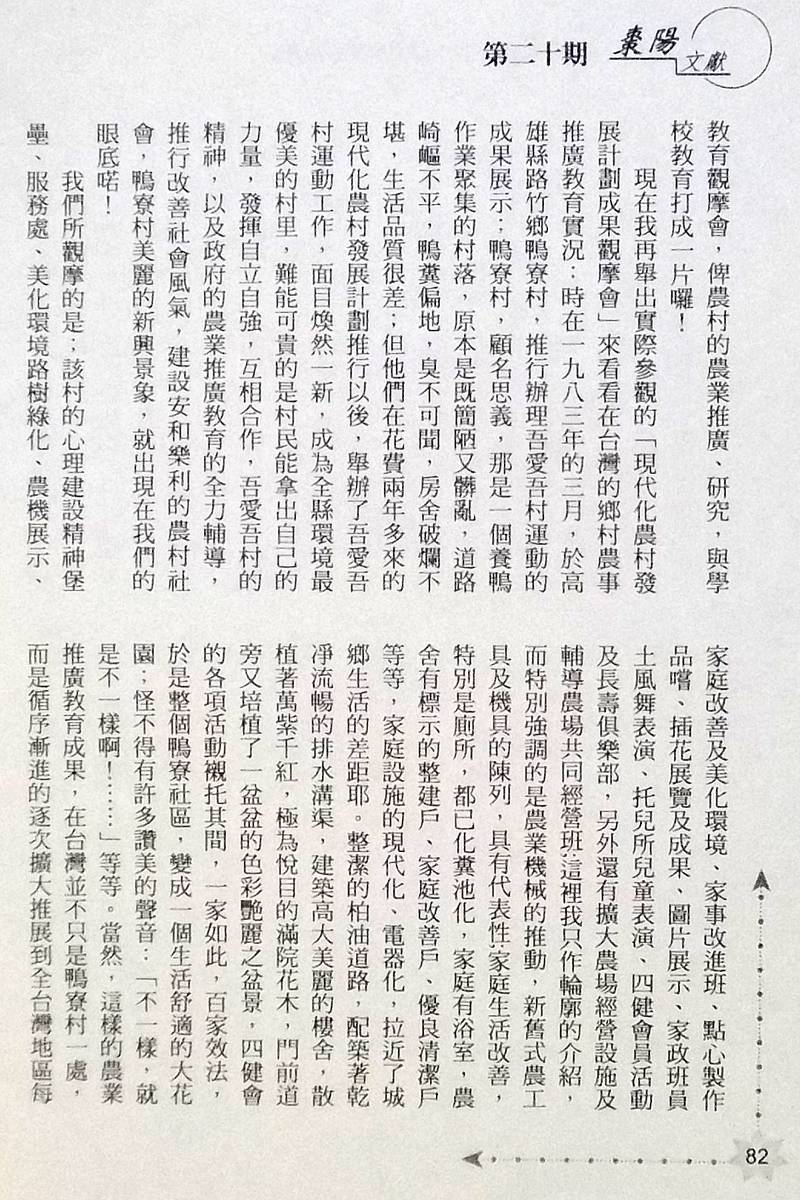 第二十期
棗陽
文獻
教育觀摩會，俾農村的農業推廣、研究，與學
校教育打成一片囉！
現在我再舉出實際參觀的「現代化農村發
展計劃成果觀摩會」來看看在台灣的鄉村農事
推廣教育實況：時在一九八三年的三月，於高
雄縣路竹鄉鴨寮村，推行辦理吾愛吾村運動的
成果展示：鴨寮村，顧名思義，那是一個養鴨
作業聚集的村落，原本是既簡陋又髒亂，道路
崎嶇不平，鴨糞偏地，臭不可聞，房舍破爛不
堪，生活品質很差；但他們在花費兩年多來的
現代化農村發展計劃推行以後，舉辦了吾愛吾
村運動工作，面目煥然一新，成為全縣環境最
優美的村里，難能可貴的是村民能拿出自己的
力量，發揮自立自強，互相合作，吾愛吾村的
精神，以及政府的農業推廣教育的全力輔導，
推行改善社會風氣，建設安和樂利的農村社
會，鴨寮村美麗的新興景象，就出現在我們的
眼底喏！
我們所觀摩的是；該村的心理建設精神堡
壘、服務處、美化環境路樹綠化、農機展示、
家庭改善及美化環境、家事改進班、點心製作
品嚐、插花展覽及成果、圖片展示、家政班員
土風舞表演、托兒所兒童表演、四健會員活動
及長壽俱樂部，另外還有擴大農場經營設施及
輔導農場共同經營班:這裡我只作輪廓的介紹，
而特別強調的是農業機械的推動，新舊式農工
具及機具的陳列，具有代表性:家庭生活改善，
特別是廁所，都已化糞池化，家庭有浴室，農
舍有標示的整建戶、家庭改善戶、優良清潔戶
等等，家庭設施的現代化、電器化，拉近了城
鄉生活的差距耶。整潔的柏油道路，配築著乾
凈流暢的排水溝渠，建築高大美麗的樓舍，散
植著萬紫千紅，極為悅目的滿院花木，門前道
旁又培植了一盆盆的色彩艷麗之盆景，四健會
的各項活動襯托其間，一家如此，百家效法，
於是整個鴨寮社區，變成一個生活舒適的大花
園；怪不得有許多讚美的聲音：「不一樣，就
是不一樣啊！……」等等。當然，這樣的農業
推廣教育成果，在台灣並不只是鴨寮村一處，
而是循序漸進的逐次擴大推展到全台灣地區每
82